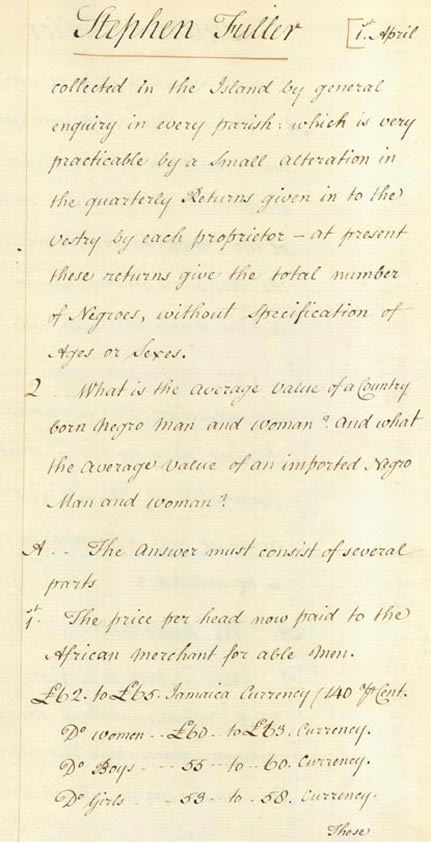 Stephen Fuller [1st April
collected in the Island by general
enquiry in every parish: which is very
practicable by a Small alteration in
the quarterly Returns given in to the
Vestry by each proprietor – at present
these returns give the total number
of Negroes, without Specification of
Ages or Sexes.
Q .. What is the average value of a Country
born Negro Man and woman? And what
the average value of an imported Negro
Man and woman?
A .. The Answer must consist of several
parts
1st. The price per head now paid to the
African Merchant for able Men.
£62. to £65. Jamaica Currency (140 Pr Cent.
Do women .. £60 .. to £63. Currency.
Do Boys .. 55 .. to .. 60. Currency.
Do Girls .. 53 .. to .. 58. Currency.
Those